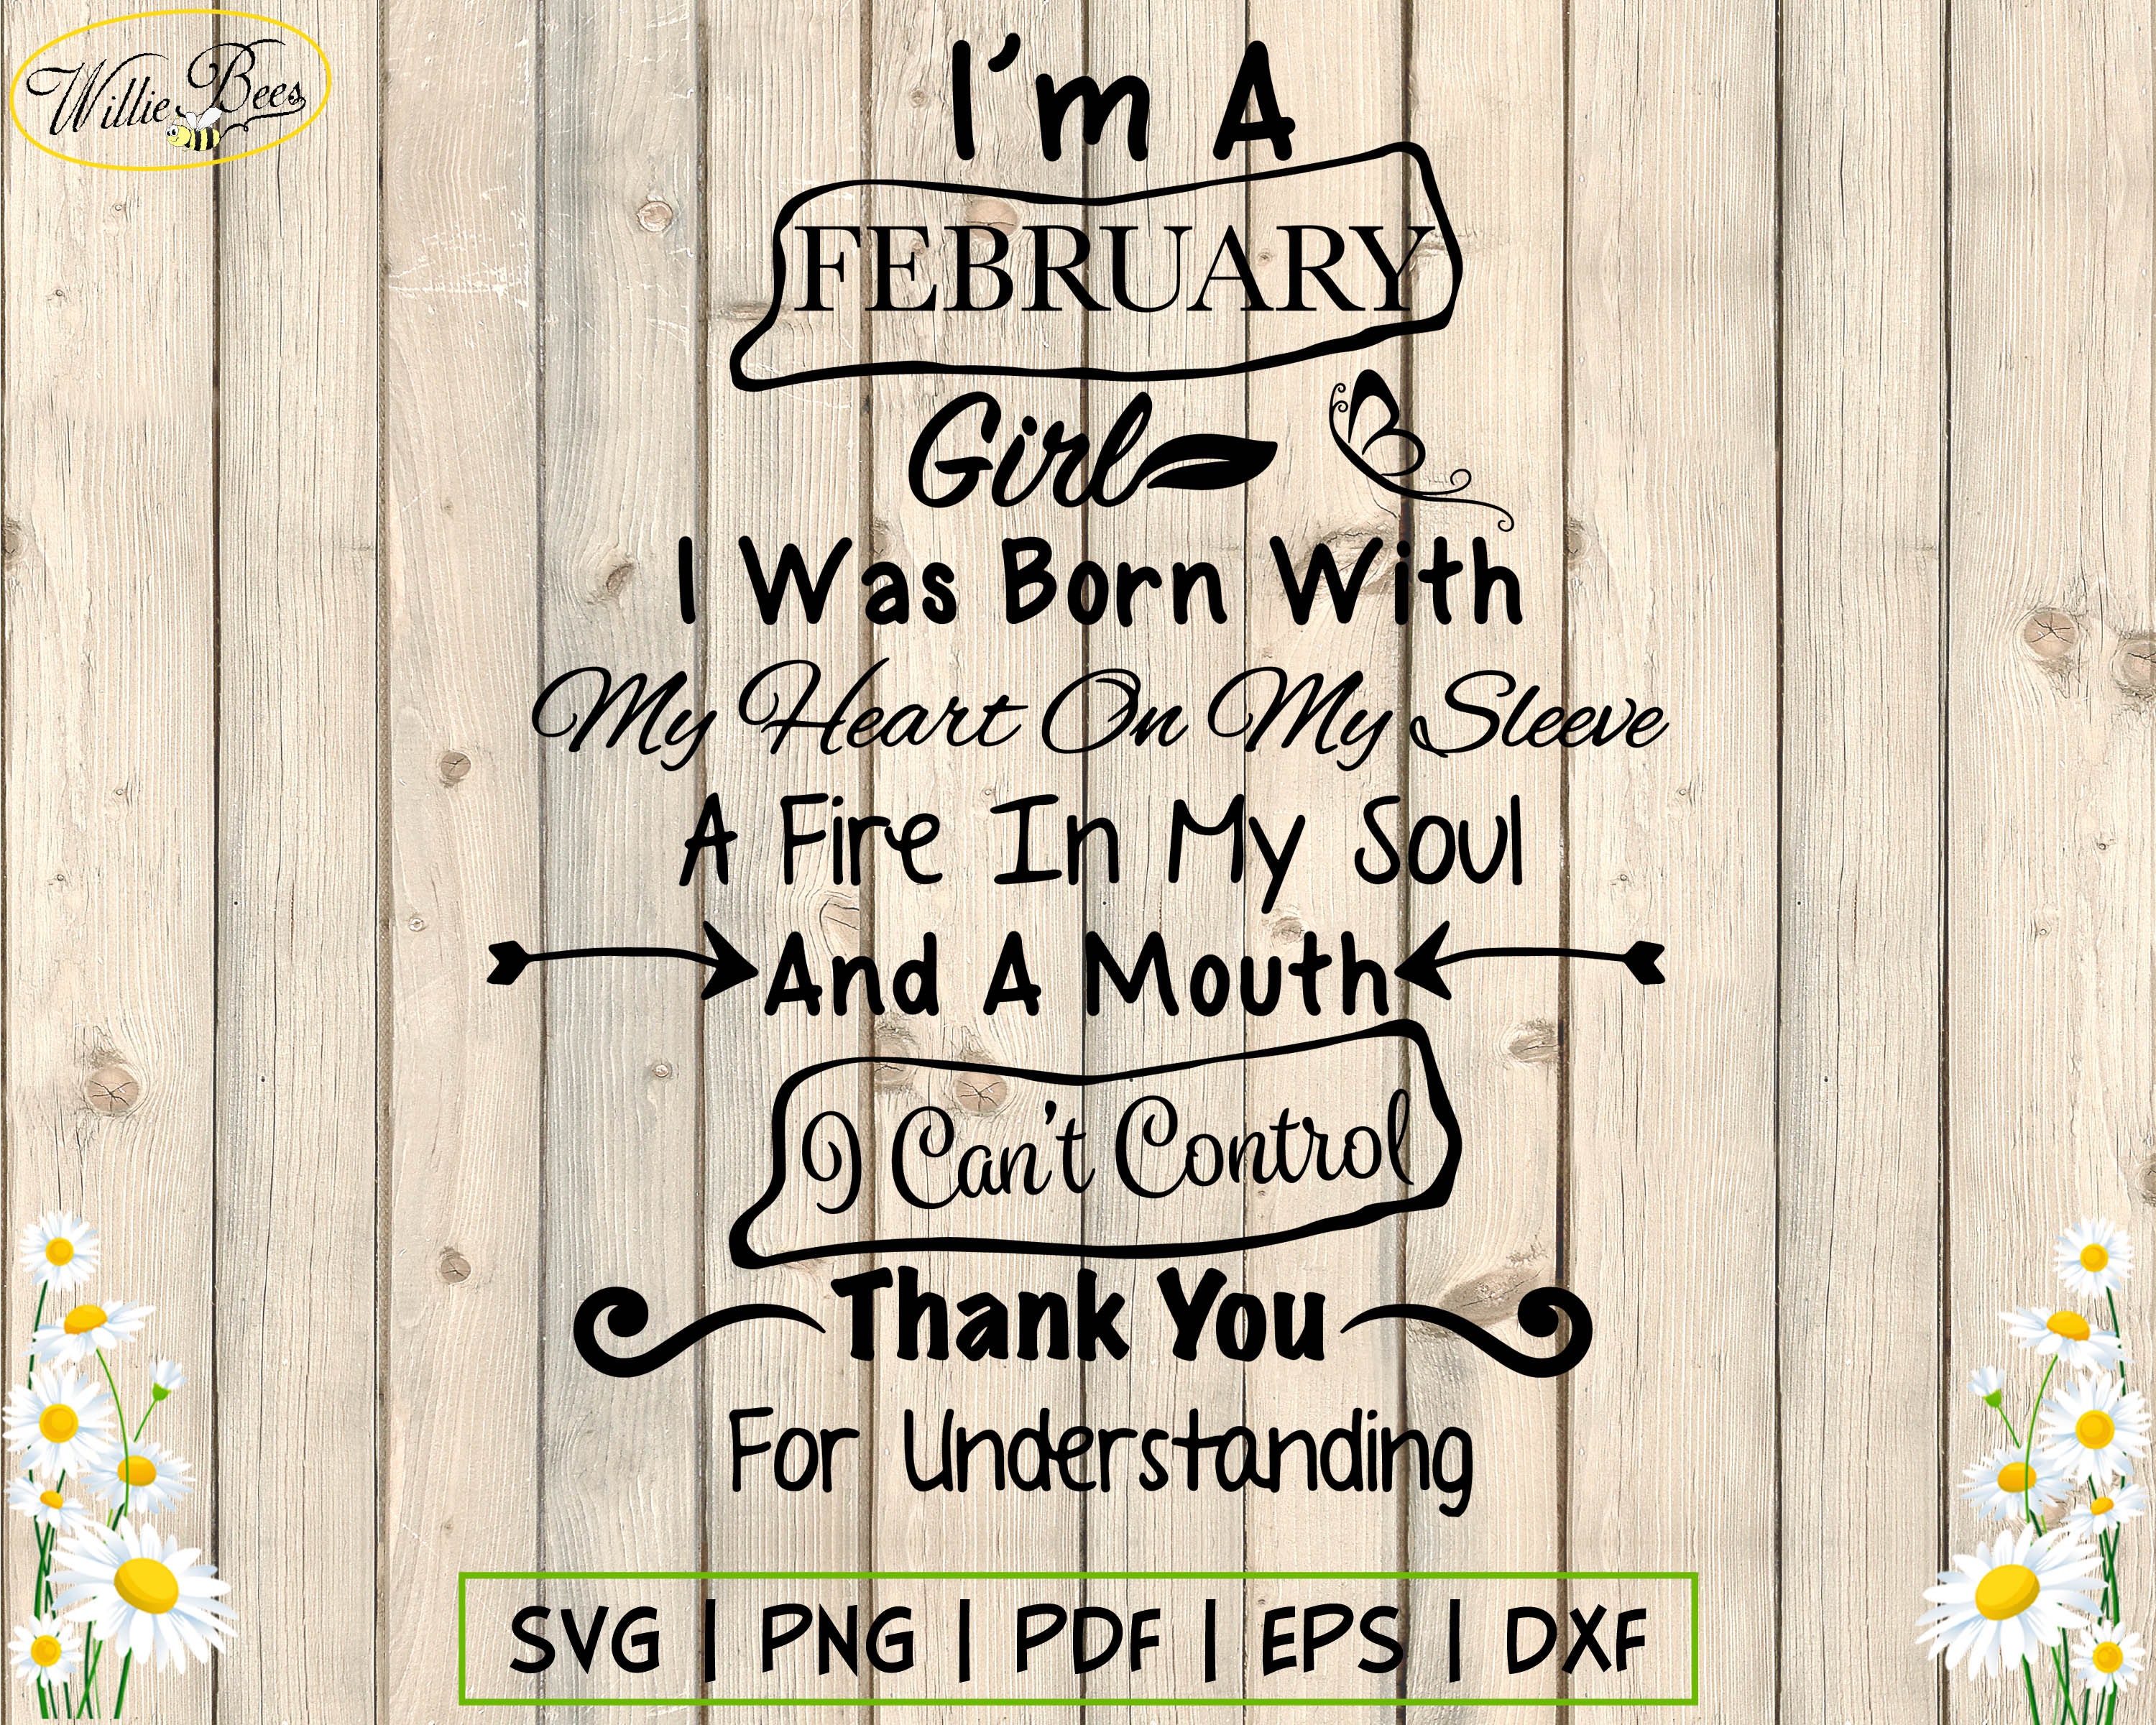 Willie Bees
I'm A
FEBRUARY
Girl
I Was Born With
My Heart On My Sleeve
A Fire In My Soul
And A Mouth
I Can't Control
Thank You
For Understanding
SVG | PNG | PDF | EPS | DXF